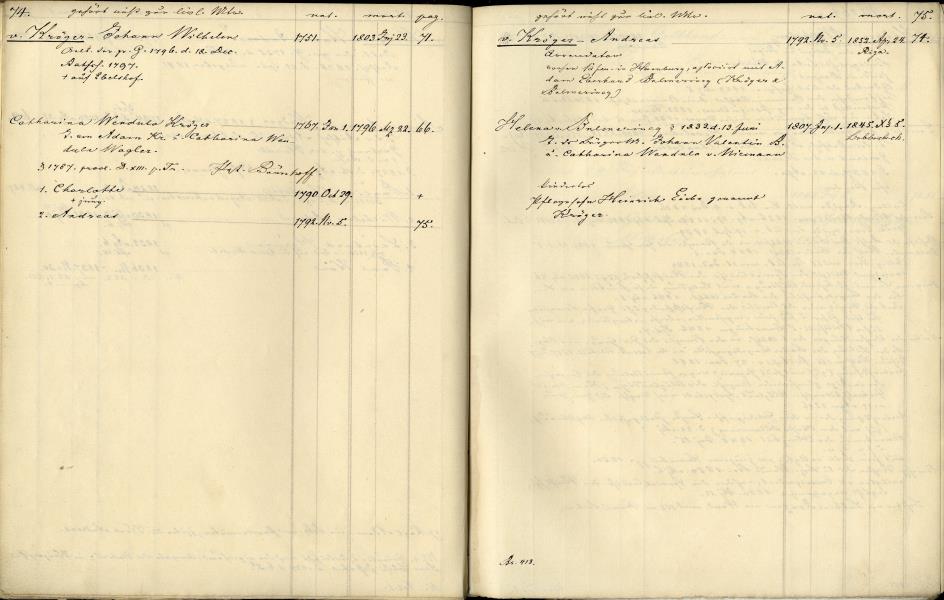 74. gehört nicht zur livl. Mtr. nat. mort. pag.
v. Kröger - Johann Wilhelm 1751. 1803 71.
Arlt. der pr. G. 1796. d. 18. Dec.
Rathsh. 1797.
+ auf Ebelshof.
Catharina Wendula Kröger 1767. Jan 1. 1796 Mz 22. 66.
T. von Adam Kr. & Catharina Wen-
dula Wagler.
1787.
1. Charlotte 1790. Oct 29. +
+ jung.
2. Andreas 1792. Nv. 5. 75.
gehört nicht zur livl. Mtr. nat. mort. 75.
v. Kröger - Andreas 1792. Nv. 5. 1852. Apr 24. 74.
Arrendator Riga.
in Homburg, associirt mit A-
dam Eberhard Bulmerincq (Kröger &
Bulmerincq)
Helena v. Bulmerincq 1832. d. 13. Juni 1807. 1. 1845. 5.
T. des Bürgerm. Johann Valentin B.
u. Catharina Wendula v.
kinderlos
Pflegesohn Heinrich genannt
Kröger.
Ar. 413.